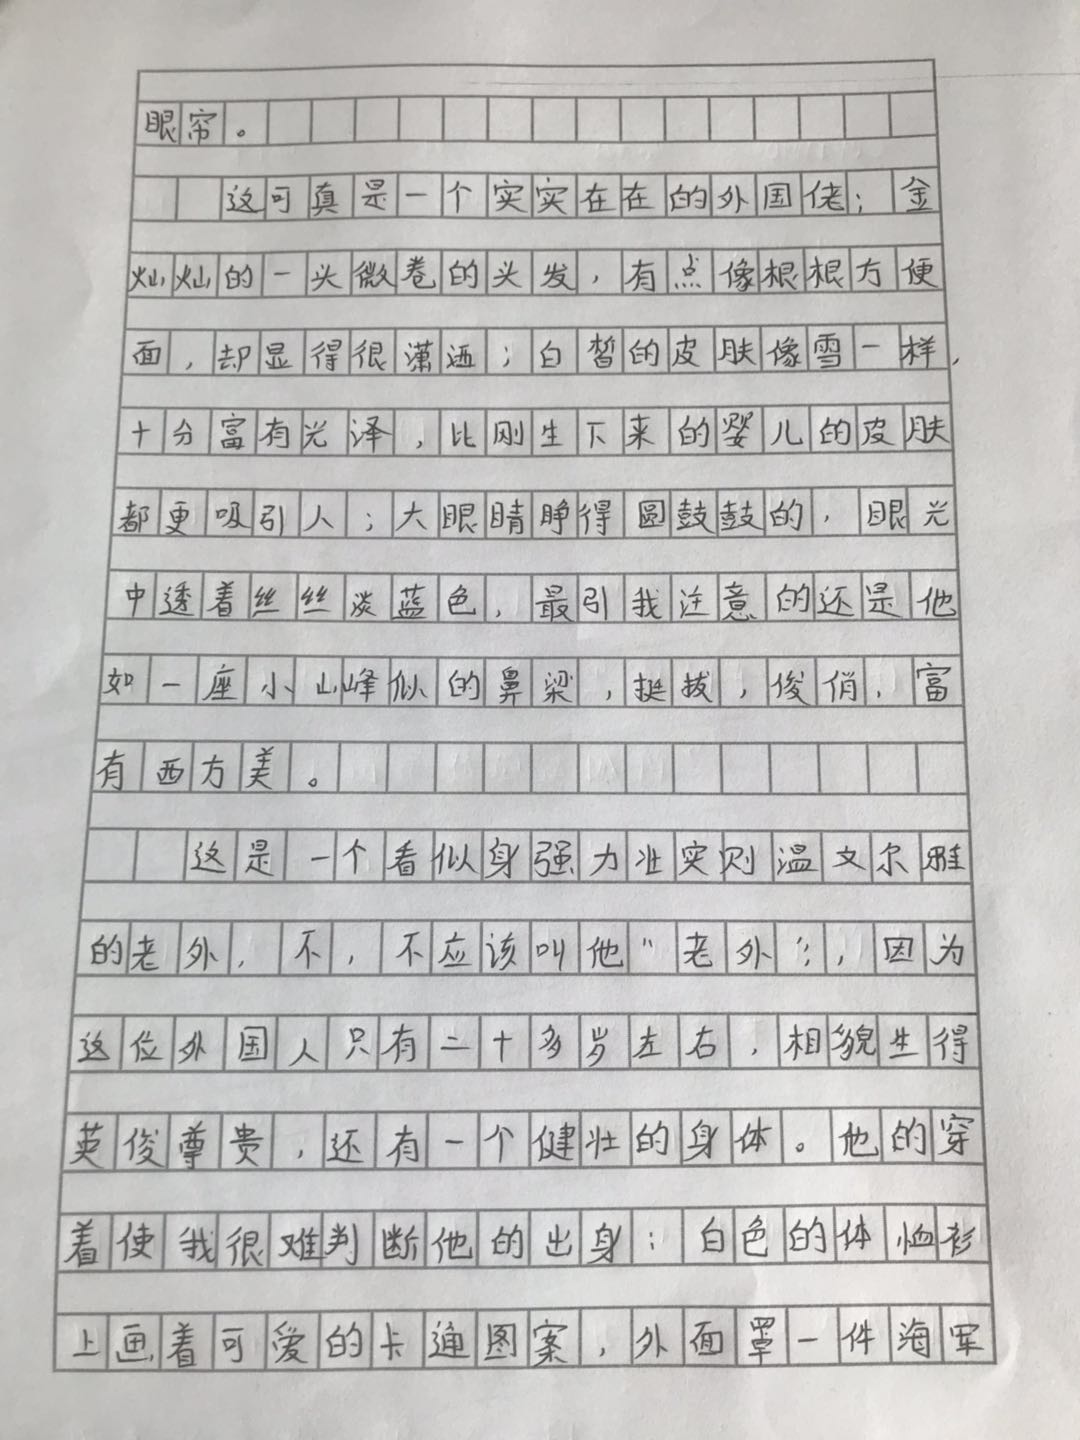 眼帘。
这可真是一个实实在在的外国佬；金
灿灿的一头微卷的头发，有点像根根方便
面，却显得很潇洒；白皙的皮肤像雪一样，
十分富有光泽，比刚生下来的婴儿的皮肤
都更吸引人；大眼睛睁得圆鼓鼓的，眼光
中透着丝丝淡蓝色，最引我注意的还是他
如一座小山峰似的鼻梁，挺拔，俊俏，富
有西方美。
这是一个看似身强力壮实则温文尔雅
的老外，不，不应该叫他“老外”，因为
这位外国人只有二十多岁左右，相貌生得
英俊尊贵，还有一个健壮的身体。他的穿
着使我很难判断他的出身：白色的体恤衫
上画着可爱的卡通图案，外面罩一件海军